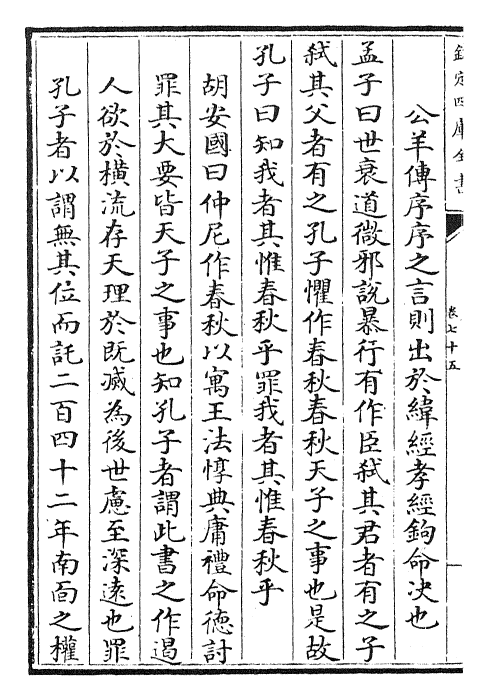 欽定四庫全書
卷七十五
公羊傳序序之言則出於緯經孝經鉤命决也
孟子曰世衰道微邪說暴行有作臣弑其君者有之子
弑其父者有之孔子懼作春秋春秋天子之事也是故
孔子曰知我者其惟春秋乎罪我者其惟春秋乎
胡安國曰仲尼作春秋以寓王法惇典庸禮命德討
罪其大要皆天子之事也知孔子者謂此書之作遏
人欲於橫流存天理於既滅為後世慮至深遠也罪
孔子者以謂無其位而託二百四十二年南面之權